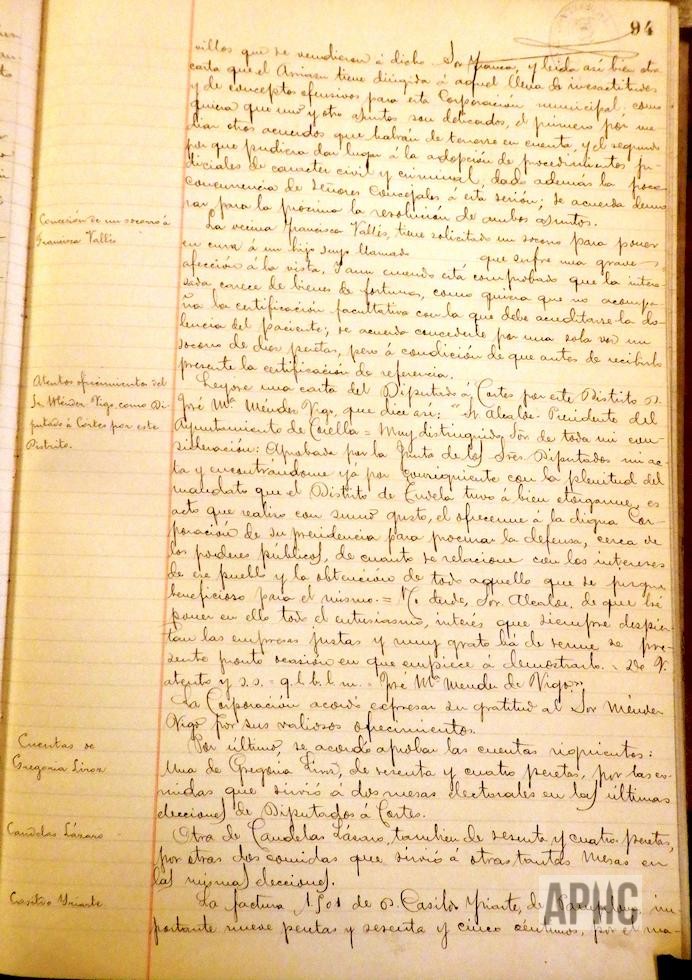 94
villos que se vendieron á dicho Sor Franca, y leida asi bien otra
carta que el Arnizen tiene dirigida á aquel llena de inexactitudes
y de conceptos ofensivos para esta Corporación municipal; como
quiera que uno y otro asuntos son delicados, el primero por me-
diar otros acuerdos que habrán de tenerse en cuenta, y el segundo
por que pudiera dar lugar á la adopción de procedimientos ju-
diciales de caracter civil y criminal, dado además la poca
concurrencia de Señores Concejales á esta sesión; se acuerda demo-
rar para la proxima la resolución de ambos asuntos.
Concesión de un socorro á
Francisca Vallés
La vecina Francisca Vallés, tiene solicitado un socorro para poner
en cura á un hijo suyo llamado que sufre una grave
afección á la vista. Y aun cuando está comprobado que la intere-
sada carece de bienes de fortuna, como quiera que no acompa-
ña la certificación facultativa con la que debe acreditarse la do-
lencia del paciente; se acuerda concederle por una sola vez un
socorro de diez pesetas, pero á condición de que antes de recibirlo
presente la certificación de referencia.
Atentos ofrecimientos del
Sr Méndez Vigo, como Di-
putado á Cortes por este
Distrito.
Leyose una carta del Diputado á Cortes por este Distrito D.
José Mª Méndez Vigo, que dice asi: "Sr. Alcalde-Presidente del
Ayuntamiento de Corella = Muy distinguido Sor de toda mi con-
sideración: Aprobada por la Junta de los Sres Diputados mi ac-
ta y encontrándome yá por consiguiente con la plenitud del
mandato que el Distrito de Tudela tuvo á bien otorgarme, es
acto que realizo con sumo gusto, el ofrecerme á la digna Cor-
poración de su presidencia para procurar la defensa, cerca de
los poderes públicos, de cuanto se relacione con los intereses
de ese pueblo y la obtención de todo aquello que se juzgue
beneficioso para el mismo. = No dude, Sor. Alcalde, de que he
poner en ello todo el entusiasmo, interés que siempre despier-
tan las empresas justas y muy grato há de serme se pre-
sente pronto ocasión en que empiece á demostrarlo. = De V.
atento y s.s. = q.l.b.l.m. = José Mª Mendez de Vigo".
La Corporación acordó expresar su gratitud al Sor Méndez
Vigo por sus valiosos ofrecimientos.
Cuentas de
Gregoria
Por último, se acordó aprobar las cuentas siguientes:
Una de Gregoria, de sesenta y cuatro pesetas, por las co-
midas que sirvió á dos mesas electorales en las últimas
elecciones de Diputados á Cortes.
Candelas Lázaro
Otra de Candelas Lázaro, tambien de sesenta y cuatro pesetas,
por otras dos comidas que sirvió á otras tantas mesas en
las mismas elecciones.
Casildo Yriarte
La factura de D. Casildo Yriarte, de Pamplona, im-
portante nueve pesetas y sesenta y cinco céntimos, por el ma-
APHC